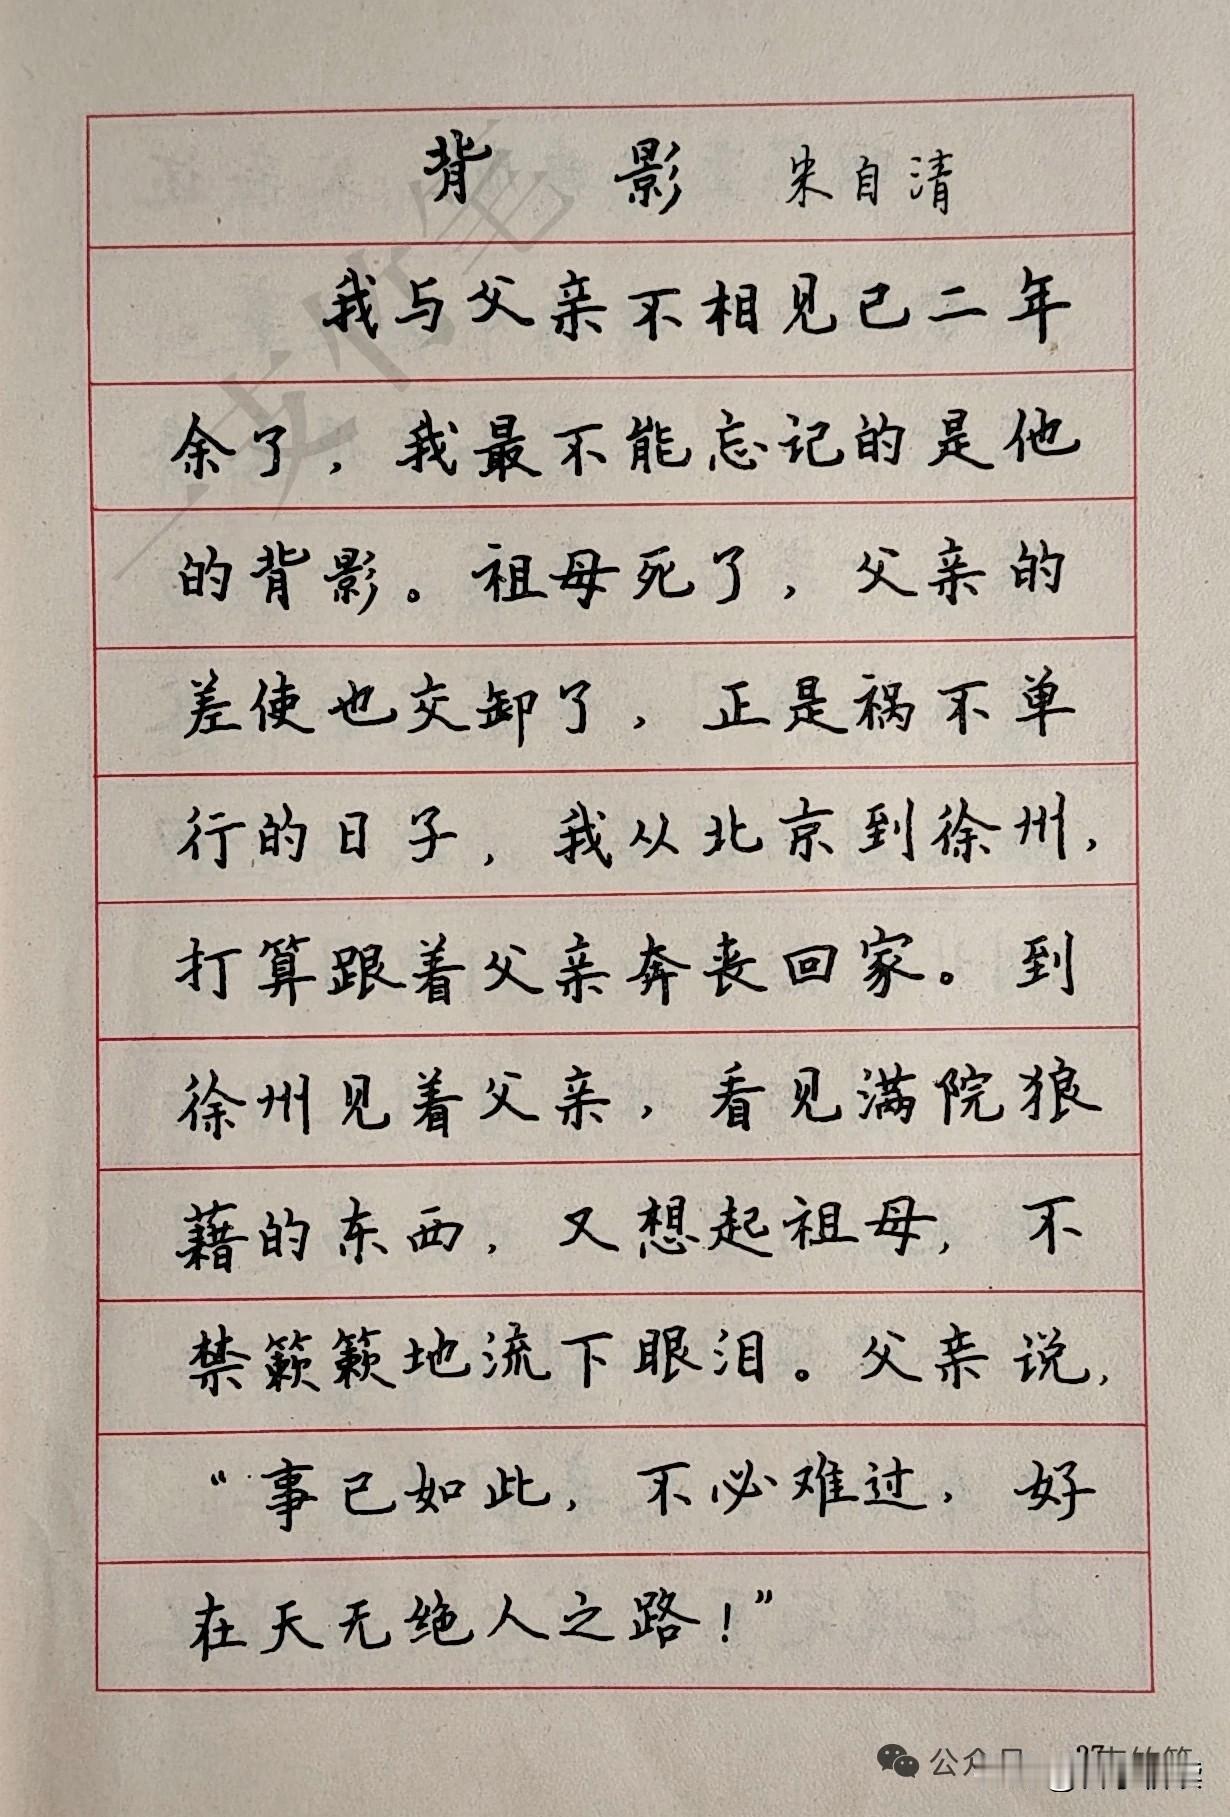 背 影 朱自清
我与父亲不相见已二年
余了，我最不能忘记的是他
的背影。祖母死了，父亲的
差使也交卸了，正是祸不单
行的日子，我从北京到徐州，
打算跟着父亲奔丧回家。到
徐州见着父亲，看见满院狼
藉的东西，又想起祖母，不
禁簌簌地流下眼泪。父亲说，
“事已如此，不必难过，好
在天无绝人之路！”
公众